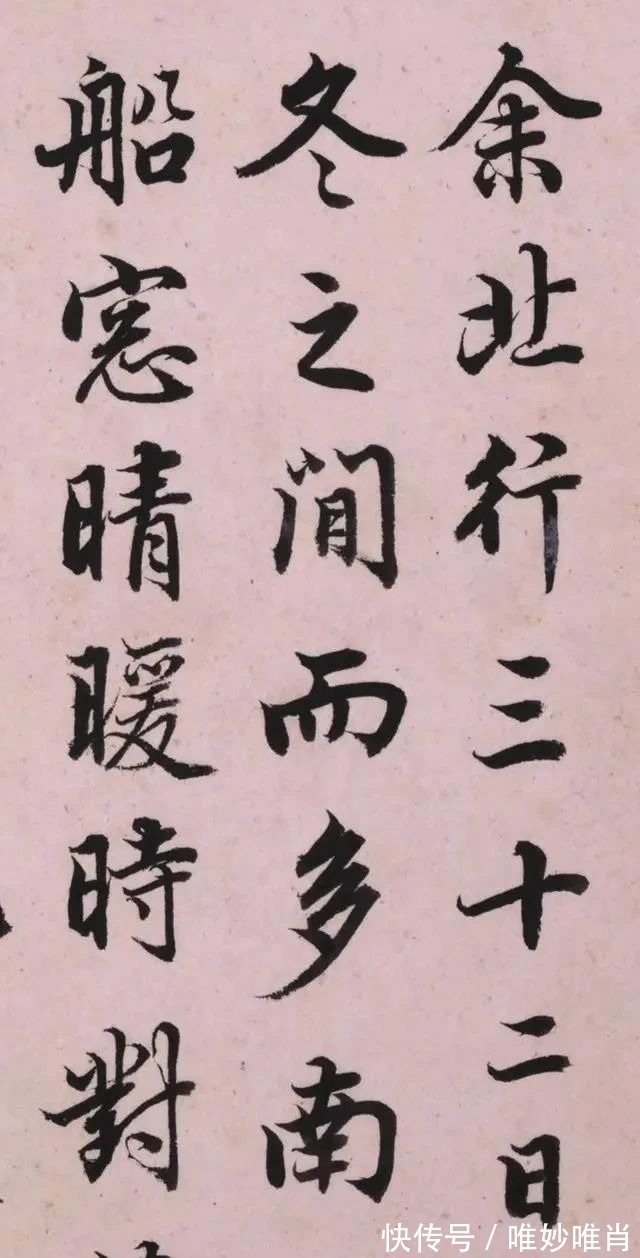 余北行三十二日
冬之間而多南
船窓晴暖時對
快传号/唯妙唯肖